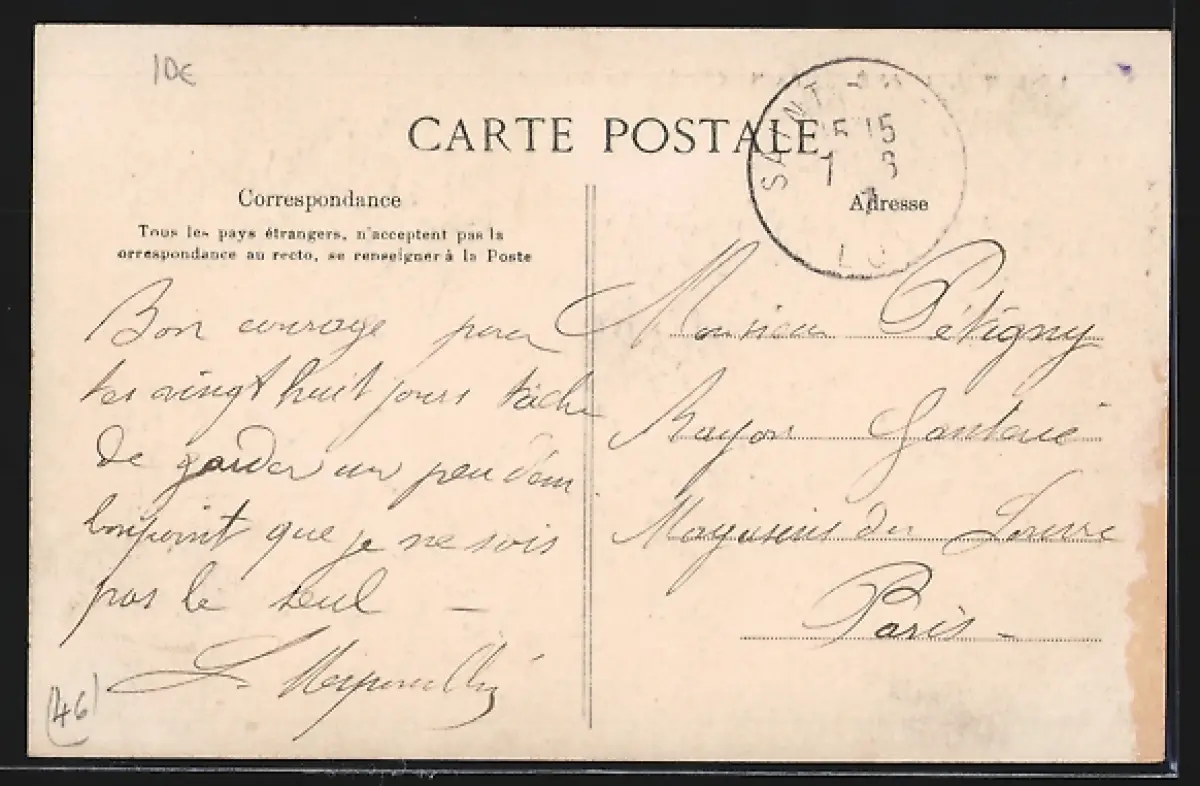 10€
CARTE POSTALE
SAINT
15 15
7 8
LO
Correspondance
Adresse
Tous les pays étrangers, n'acceptent pas la
orrespondance au recto, se renseigner à la Poste
Bon courage pour
tes vingt huit jours tâche
de garder un peu d'em
bonpoint que je ne sois
pas le seul —
L.
(46)
Monsieur Pétigny
Rayon Ganterie
Magasins du Louvre
Paris -